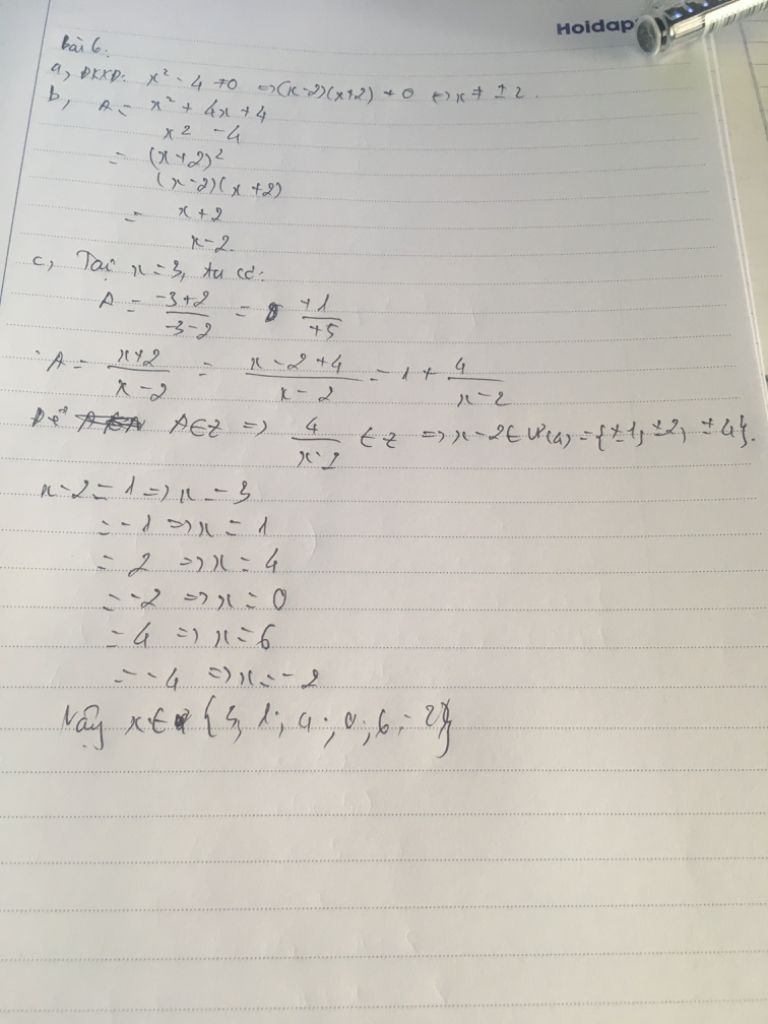 Hoidap
Bài 6:
a, ĐKXĐ: x² - 4 ≠ 0 => (x-2)(x+2) ≠ 0 <=> x ≠ ± 2.
b, A = x² + 4x + 4
x² - 4
= (x+2)²
(x-2)(x+2)
= x+2
x-2.
c, Tại x = 3, ta có:
A = -3+2 = +1
-3-2 +5
A = x+2 = x-2+4 = 1 + 4
x-2 x-2 x-2
Để A∈Z => 4 ∈ Z => x-2 ∈ Ư(4) = {±1; ±2; ±4}.
x-2
x-2 = 1 => x = 3
= -1 => x = 1
= 2 => x = 4
= -2 => x = 0
= 4 => x = 6
= -4 => x = -2
Vậy x ∈ {3; 1; 4; 0; 6; -2}